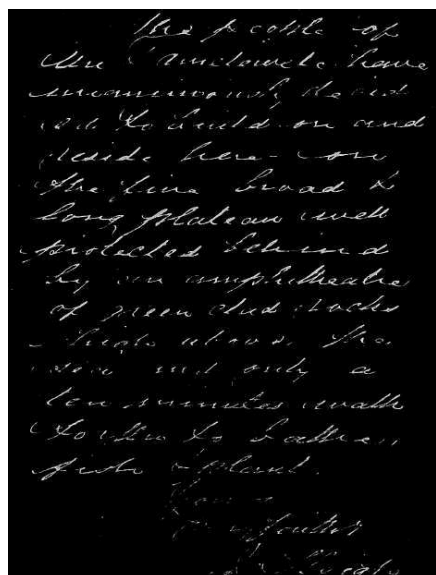 The people of
the have
unanimously decid
ed to build on and
reside here - on
the fine broad &
long plateau well
protected behind
by an amphitheatre
of green clad rocks
high above the
sea and only a
few minutes walk
to the
fish & plant.
Yours